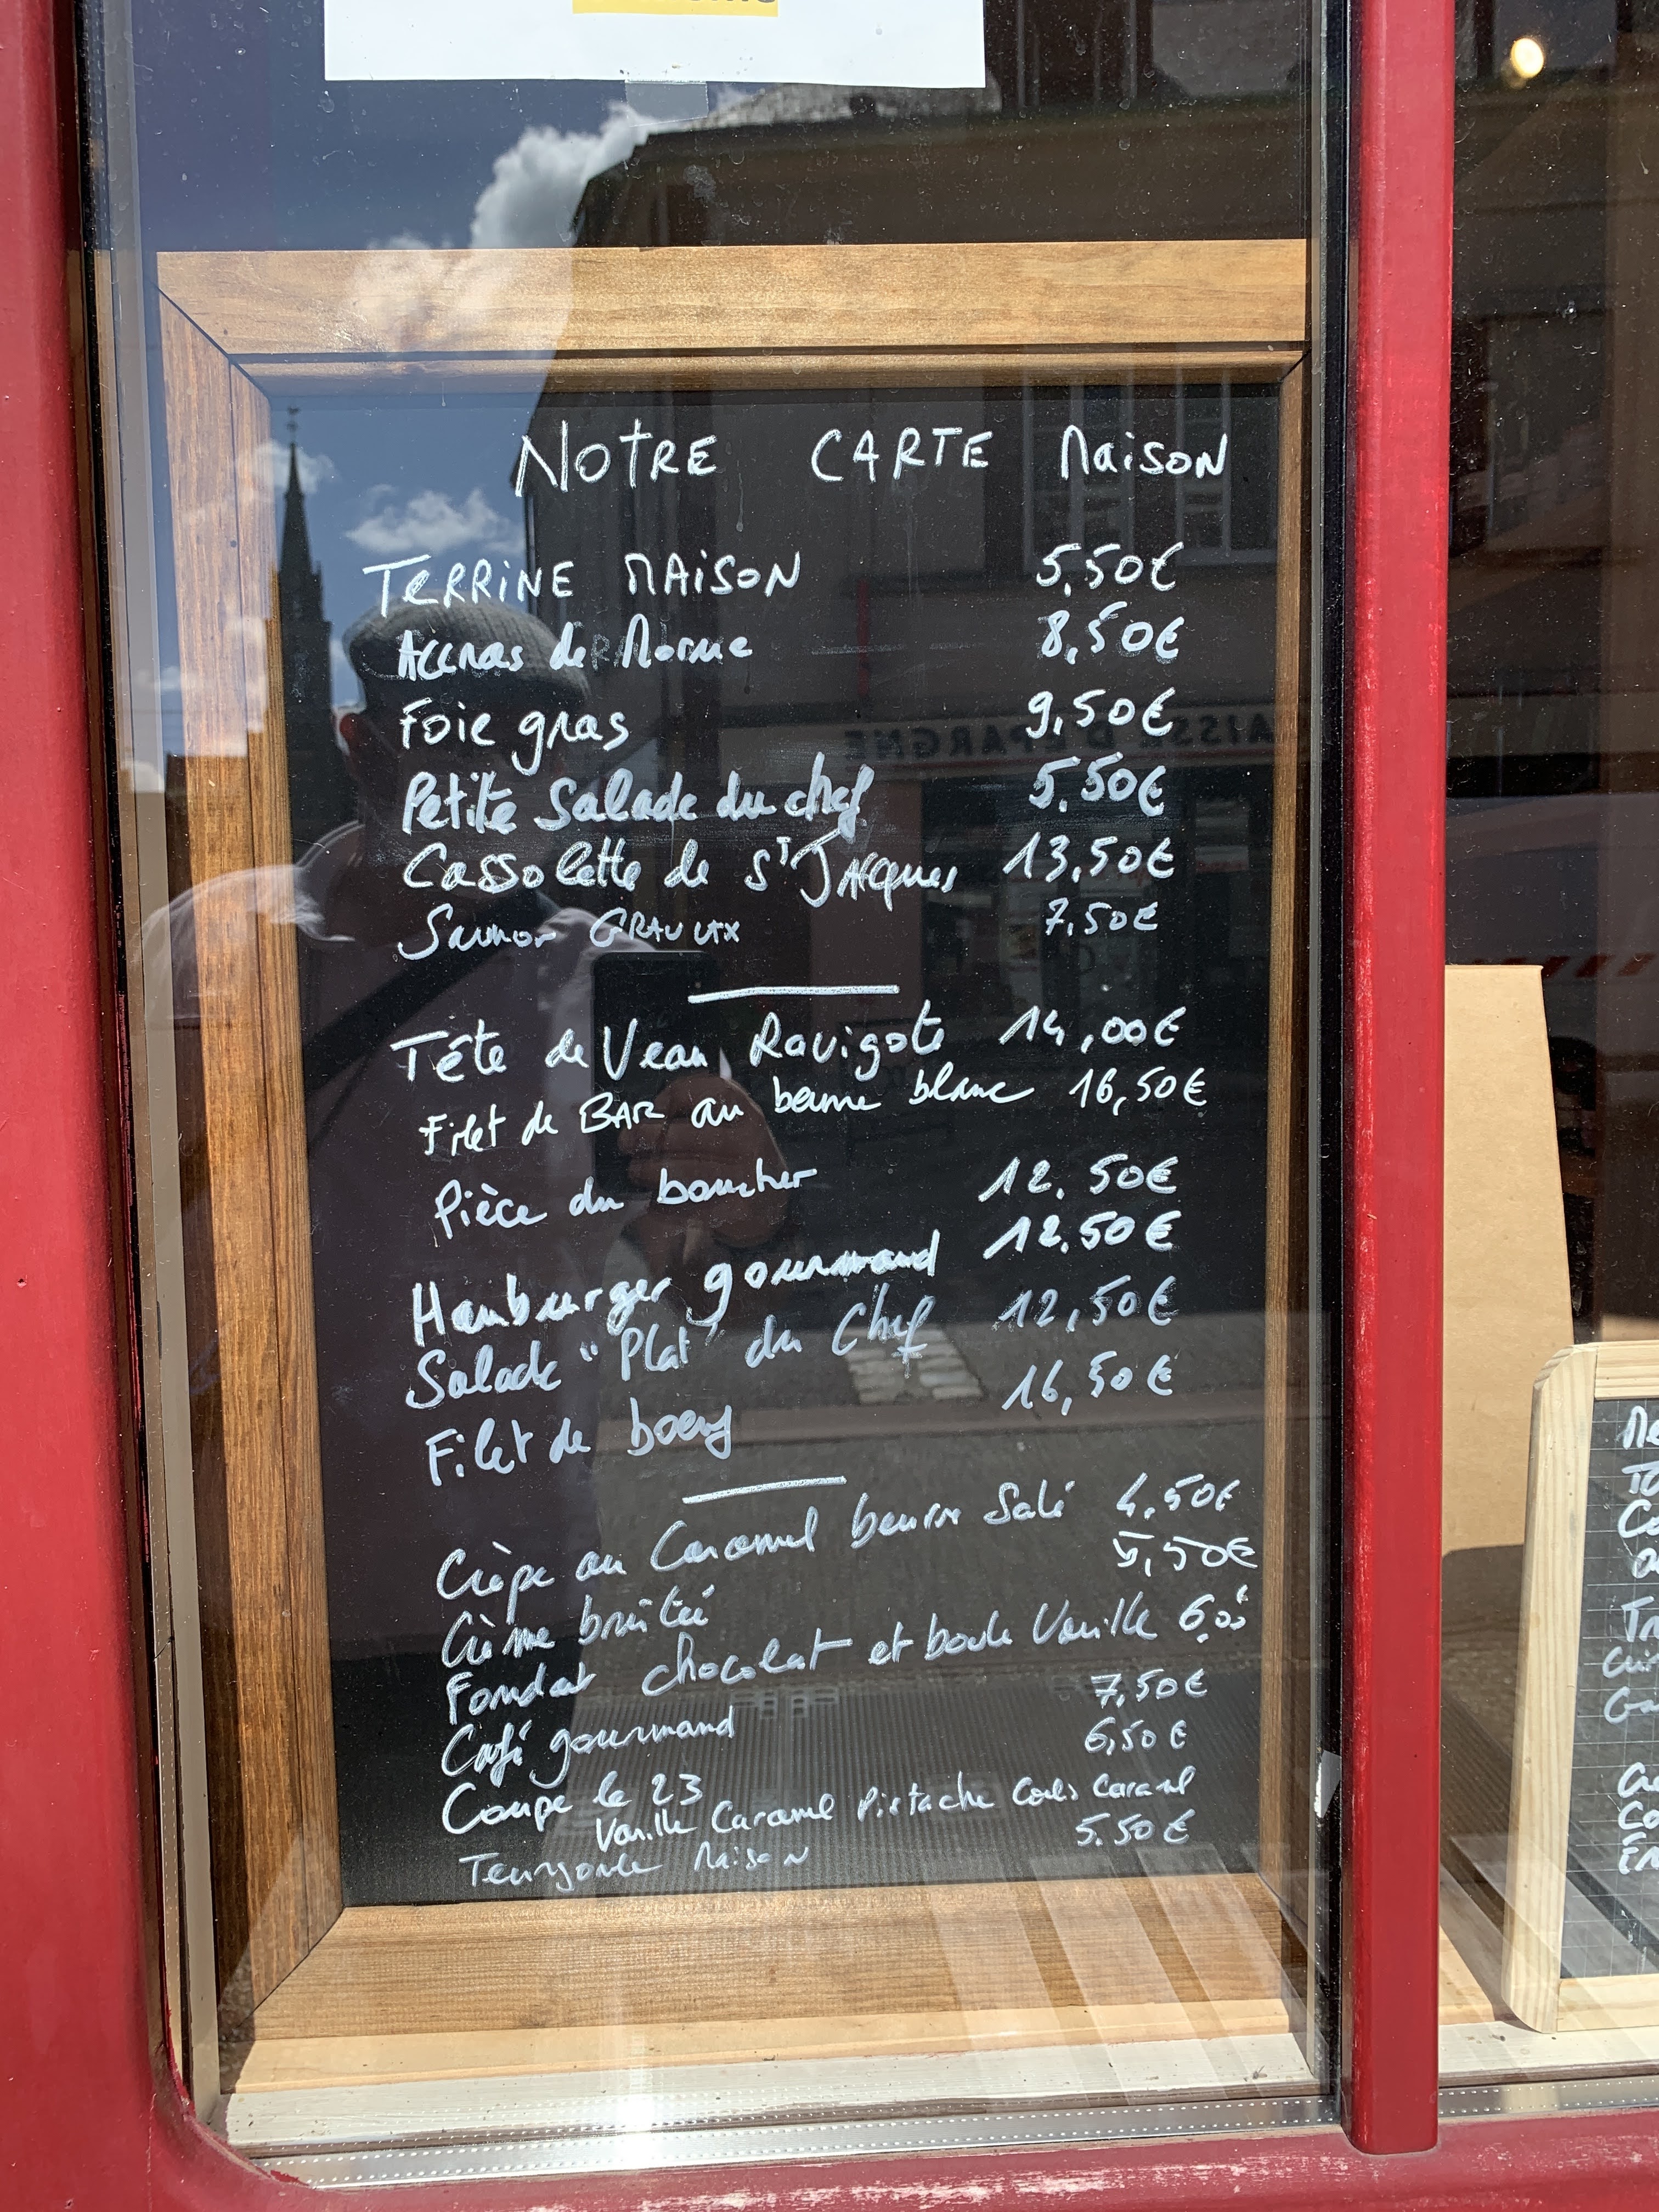 NOTRE CARTE MAISON
TERRINE MAISON 5,50€
Accras de Morue 8,50€
Foie gras 9,50€
Petite Salade du chef 5,50€
Cassolette de St JAcques 13,50€
Saumon GRAVLAX 7,50€
Tête de Veau Ravigote 14,00€
Filet de BAR au beurre blanc 16,50€
Pièce du boucher 12,50€
Hamburger gourmand 12,50€
Salade "Plat" du Chef 12,50€
Filet de boeuf 16,50€
Crèpe au Caramel beurre Salé 4,50€
Crème brûlée 5,50€
Fondat chocolat et boule Vanille 6,00
Café gourmand 7,50€
Coupe le 23 6,50€
Vanille Caramel Pistache Coulis Caramel
Teurgoule Maison 5.50€
CAISSE D'EPARGNE